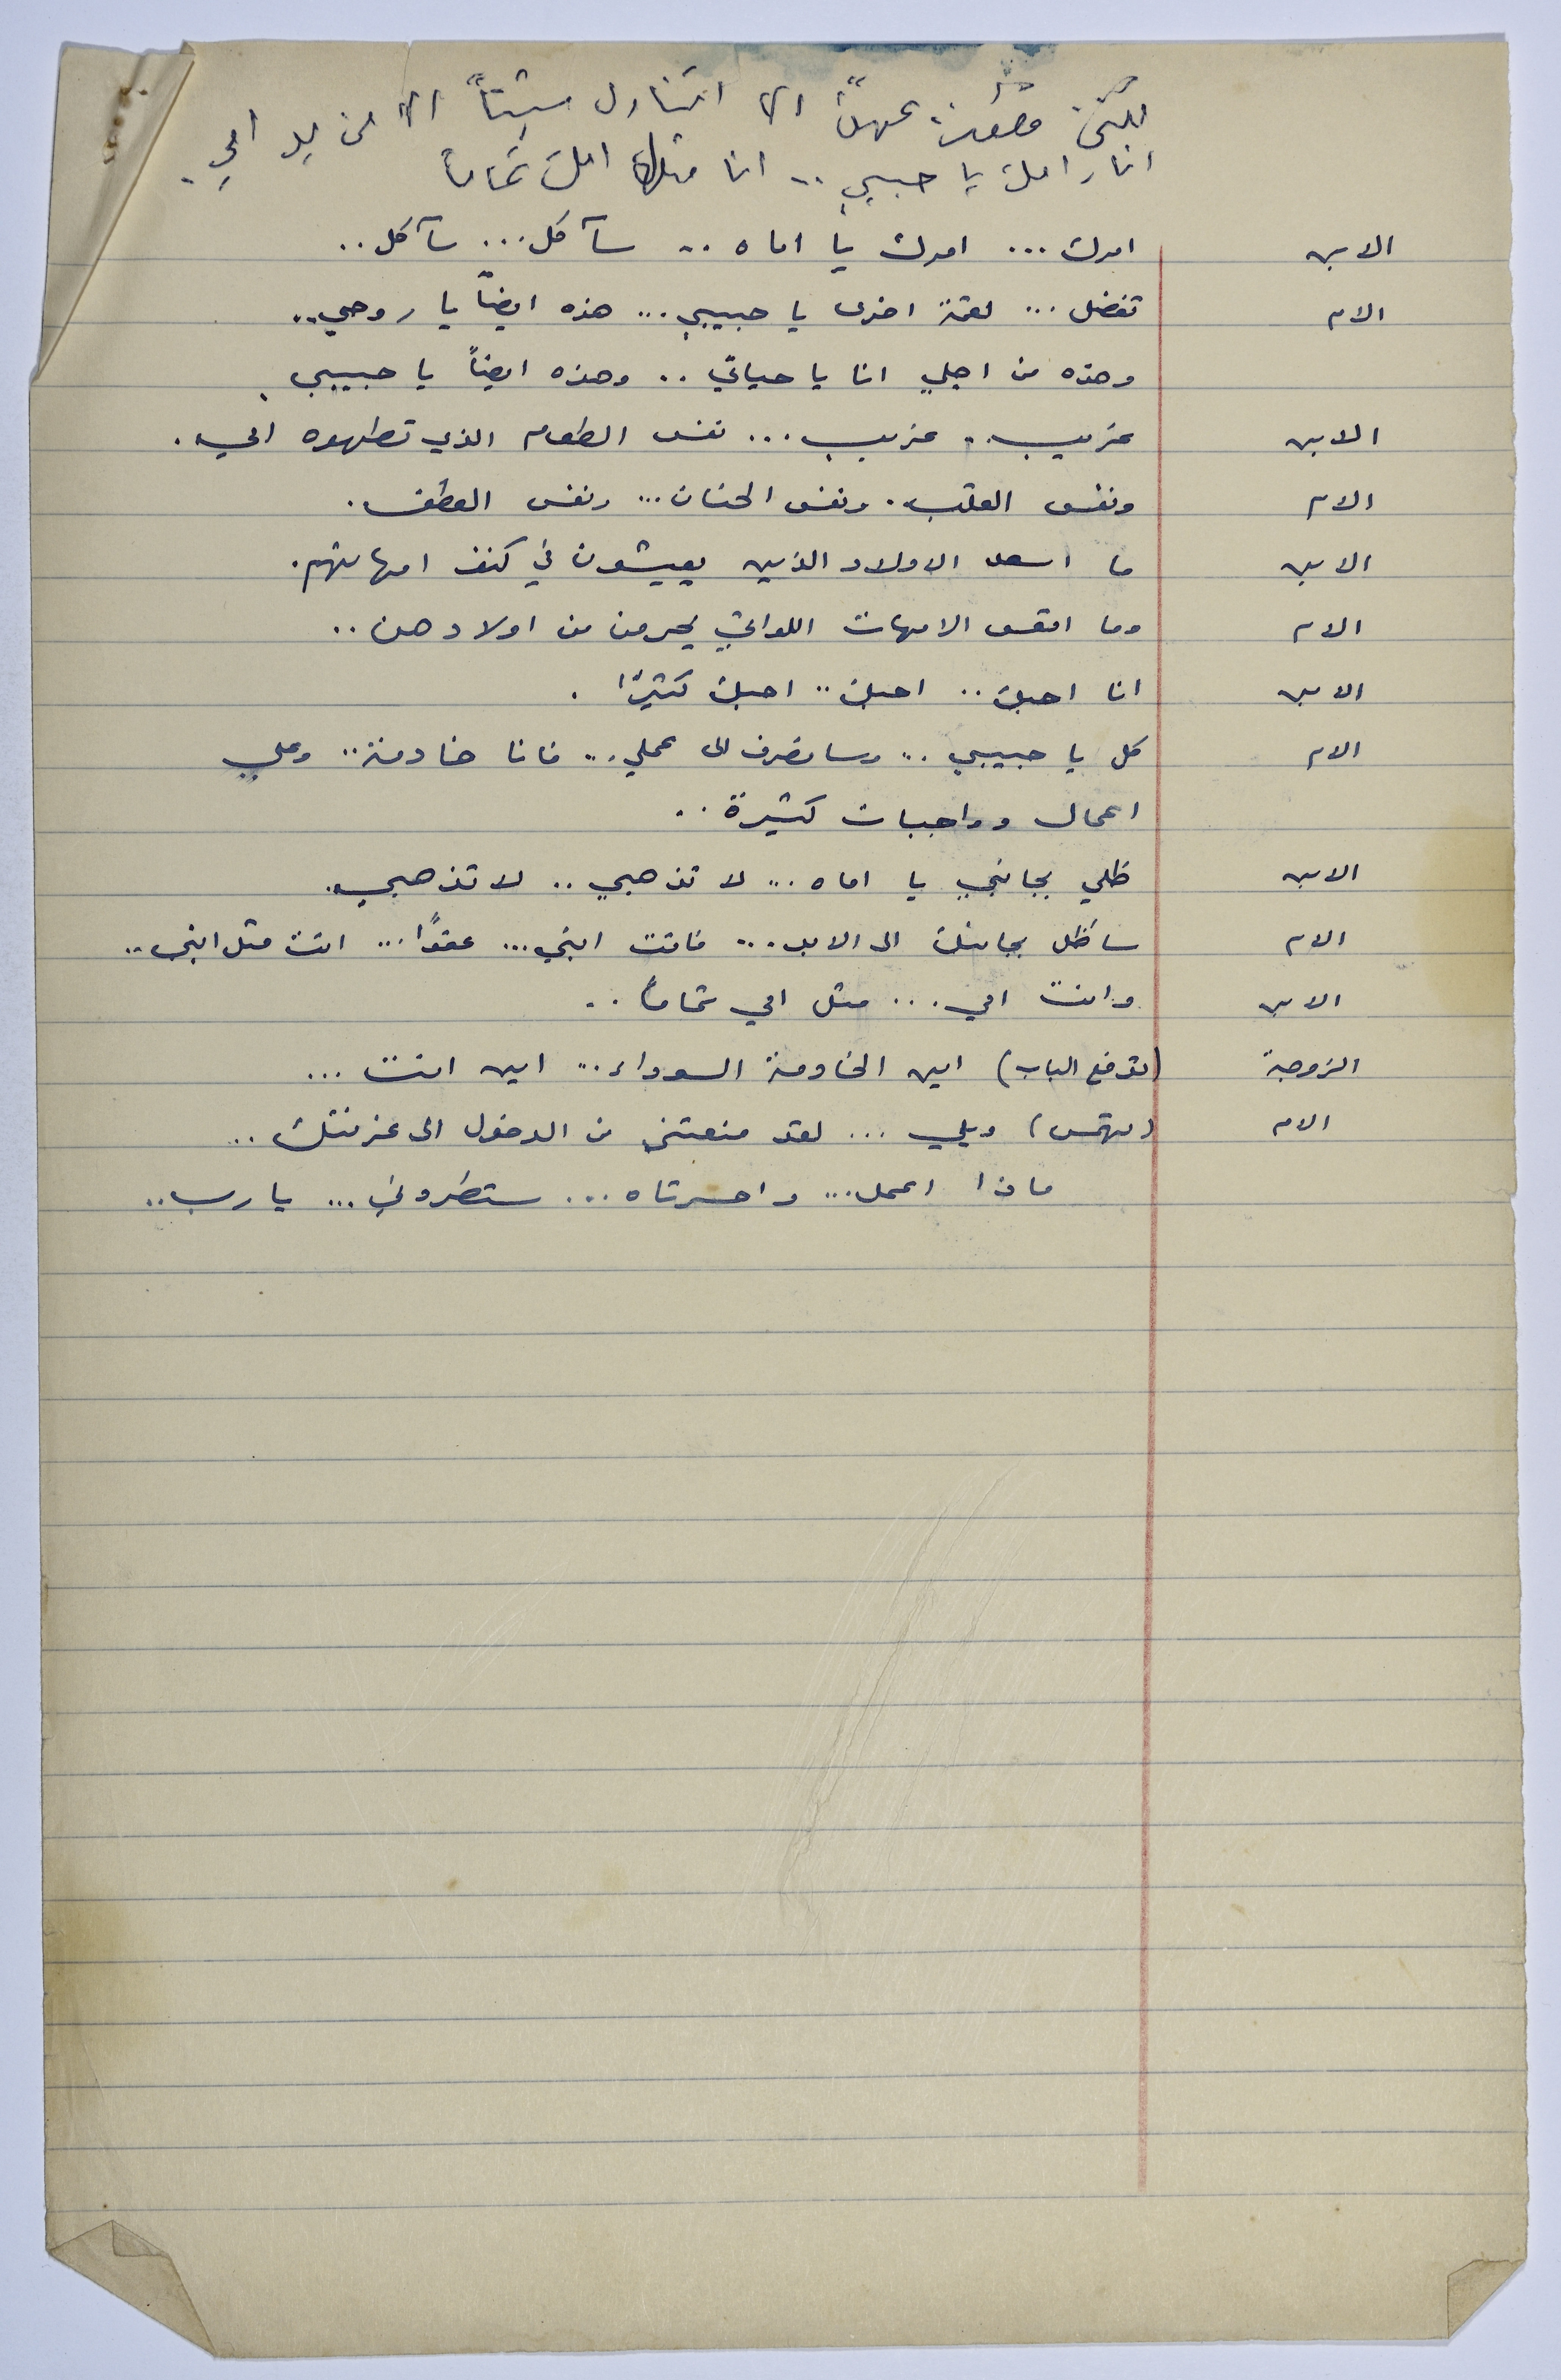 لكني قطعت عهداً الا اتناول شيئاً الا من يد امي.
انا امك يا حبيبي .. انا مثل امك تماماً
الابن امرك ... امرك يا اماه .. سآكل ... سآكل ..
الام تفضل ... لقمة اخرى يا حبيبي ... هذه ايضاً يا روحي ..
وهذه من اجلي انا يا حياتي .. وهذه ايضاً يا حبيبي .
الابن غريب .. غريب ... نفس الطعام الذي تطهوه امي .
الام ونفس القلب . ونفس الحنان ... ونفس العطف .
الابن ما اسعد الاولاد الذين يعيشون في كنف امهاتهم .
الام وما اتعس الامهات اللواتي يحرمن من اولادهن ..
الابن انا احبك .. احبك .. احبك كثيرًا .
الام كل يا حبيبي .. وسانصرف الى عملي ... فانا خادمة .. وعلي
اعمال وواجبات كثيرة ..
الابن ظلي بجانبي يا اماه ... لا تذهبي .. لا تذهبي .
الام ساظل بجانبك الى الابد ... فانت ابني ... عفوًا ... انت مثل ابني ..
الابن وانت امي ... مثل امي تماماً ..
الزوجة (تدفع الباب) اين الخادمة السوداء ... اين انت ...
الام (تهمس) ويلي ... لقد منعتني من الدخول الى غرفتك ..
ماذا اعمل ... واحسرتاه ... ستطردني ... يا رب ..